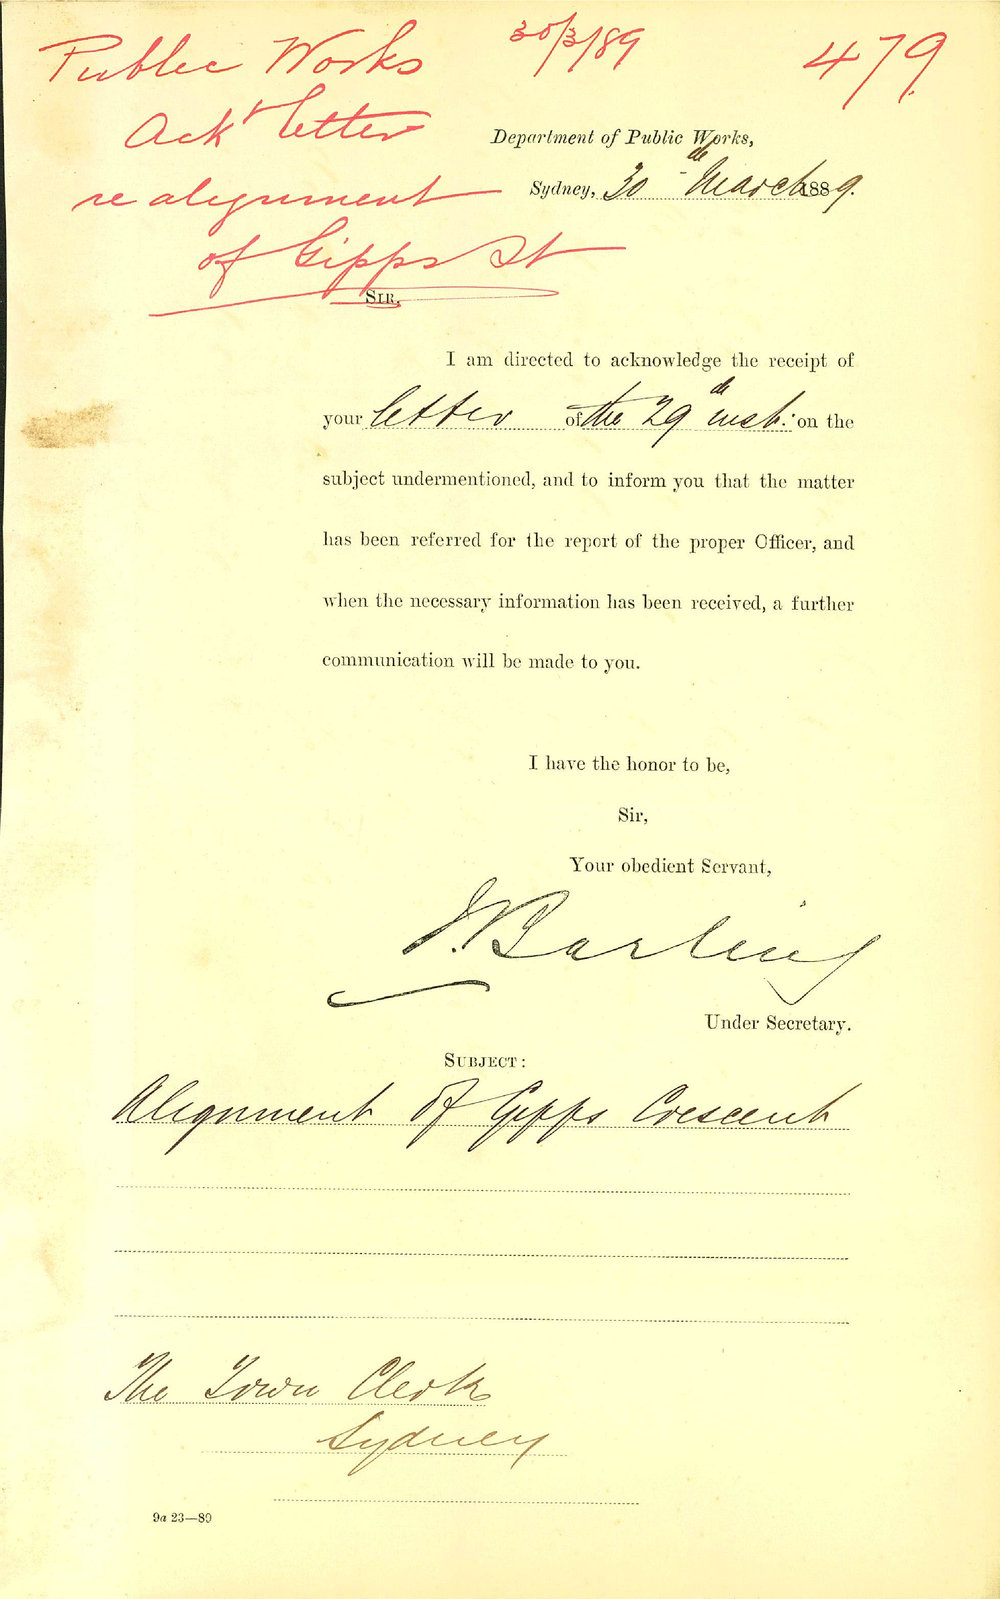 Public Works
30/3/89
479
Ackt letter
re alignment
of Gipps St
Department of Public Works,
Sydney, 30th March 1889.
SIR,
I am directed to acknowledge the receipt of
your letter of the 29th inst: on the
subject undermentioned, and to inform you that the matter
has been referred for the report of the proper Officer, and
when the necessary information has been received, a further
communication will be made to you.
I have the honor to be,
Sir,
Your obedient Servant,
J. Barling
Under Secretary.
SUBJECT:
Alignment of Gipps Crescent
The Town Clerk
Sydney
9a 23—89